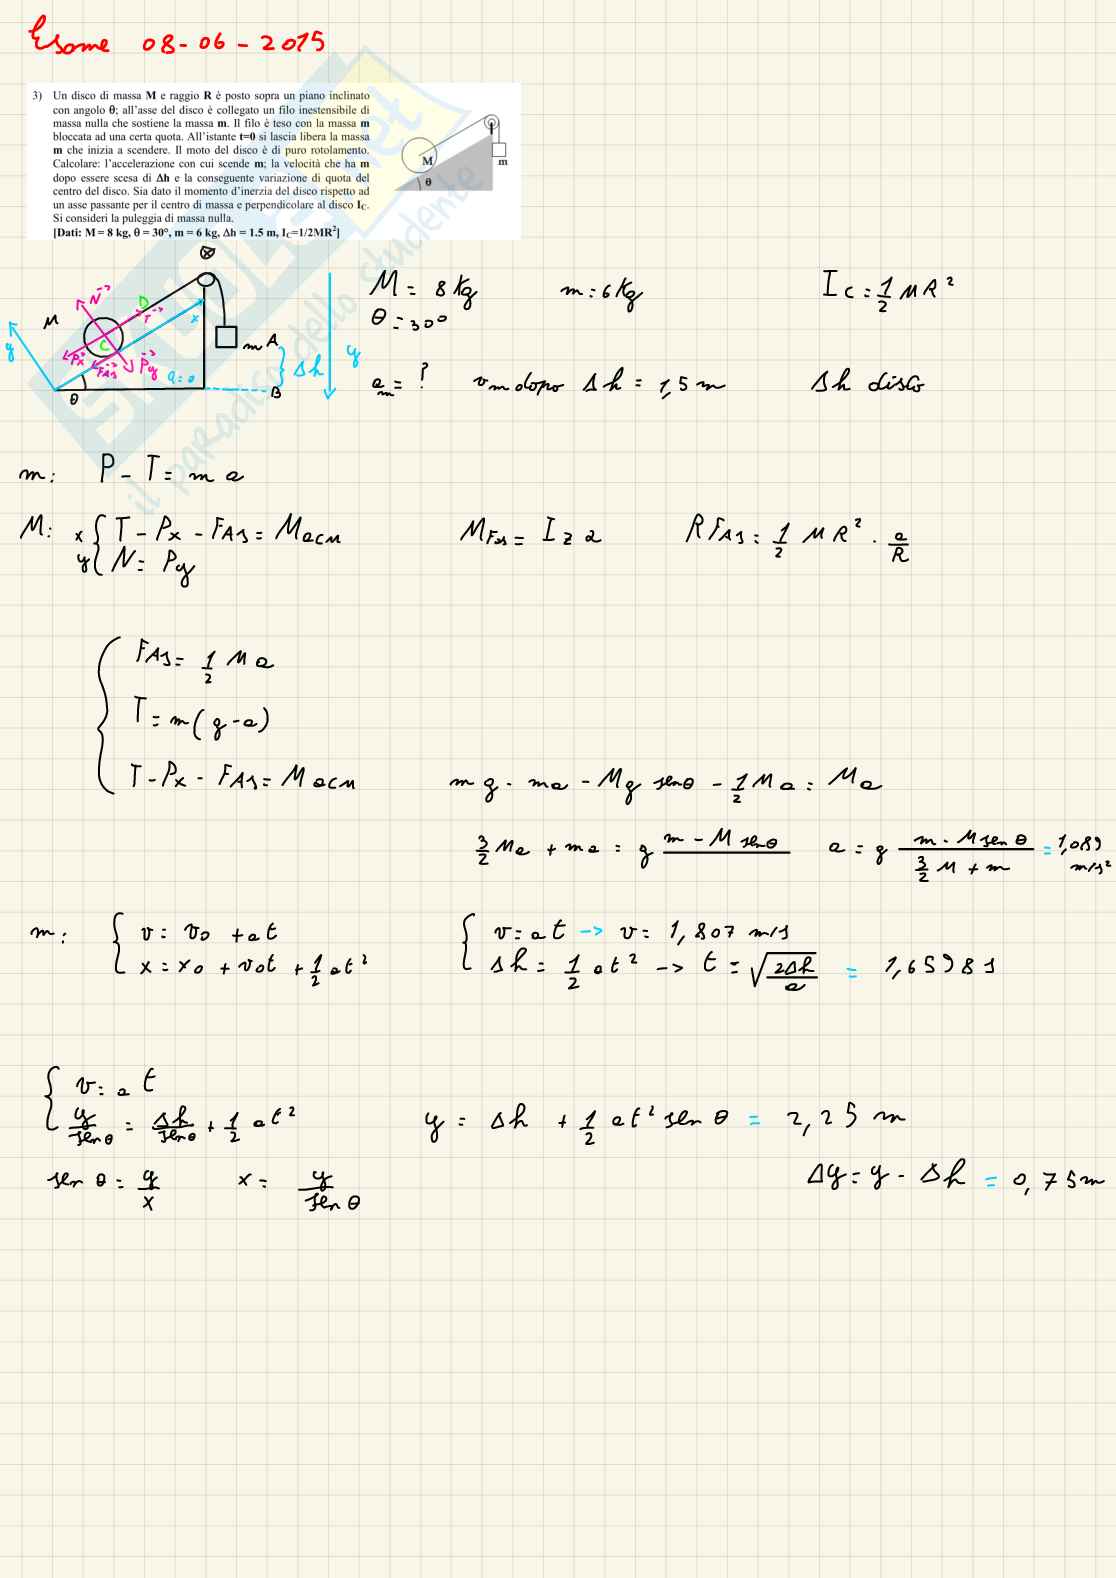 Esame 08-06-2015
3) Un disco di massa M e raggio R è posto sopra un piano inclinato
con angolo θ; all'asse del disco è collegato un filo inestensibile di
massa nulla che sostiene la massa m. Il filo è teso con la massa m
bloccata ad una certa quota. All'istante t=0 si lascia libera la massa
m che inizia a scendere. Il moto del disco è di puro rotolamento.
Calcolare: l'accelerazione con cui scende m; la velocità che ha m
dopo essere scesa di Δh e la conseguente variazione di quota del
centro del disco. Sia dato il momento d'inerzia del disco rispetto ad
un asse passante per il centro di massa e perpendicolare al disco I_C.
Si consideri la puleggia di massa nulla.
[Dati: M = 8 kg, θ = 30°, m = 6 kg, Δh = 1.5 m, I_C=1/2MR²]
M
m
θ
M N D T x
y C Px FAs Py Q=0 m A Δh y
θ B
M = 8 kg m = 6 kg I_C = 1/2 MR²
θ = 30°
a_m = ? v_m dopo Δh = 1,5 m Δh disco
m: P - T = m a
M: x { T - Px - FAs = M a_CM M_FAs = I_z α R FAs = 1/2 MR² · a/R
y { N = Py
FAs = 1/2 M a
T = m(g-a)
T - Px - FAs = M a_CM mg - ma - Mg senθ - 1/2 Ma = Ma
3/2 Ma + ma = g m - M senθ a = g (m - M senθ)/(3/2 M + m) = 1,089 m/s²
m: { v = v0 + at { v = at -> v = 1,807 m/s
x = x0 + v0t + 1/2 at² Δh = 1/2 at² -> t = √(2Δh/a) = 1,6598 s
{ v = at
y/senθ = Δh/senθ + 1/2 at² y = Δh + 1/2 at² senθ = 2,25 m
sen θ = y/x x = y/senθ Δy = y - Δh = 0,75 m
SKUOLA.net
il paradiso dello studente